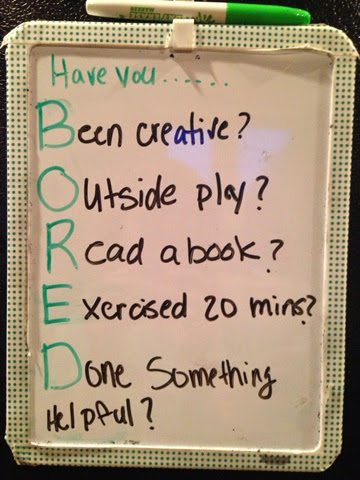 Have you......
Been creative?
Outside play?
Read a book?
Exercised 20 mins?
Done Something
Helpful?